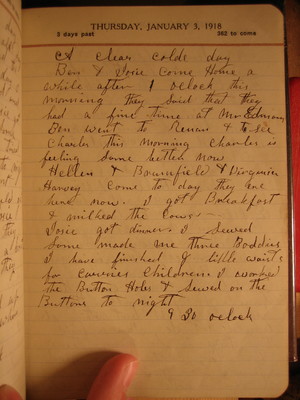 THURSDAY, JANUARY 3, 1918
3 days past 362 to come
A clear colds day
Ben & Josie come Home a
while after 1 oclock this
morning they said that they
had a fine time at Mr Edmon
Ben went to & to see
Charlie this morning Charlie is
feeling some better now
Hellen & &
Harvey come to day they are
here now. I got Breakfast
& milked the cows
Josie got dinner. I sewed
some made are three Boddies
I have finished 4 little waists
for childrens I worked
the Button Holes & sewed on the
Buttons to night
9 30 oclock